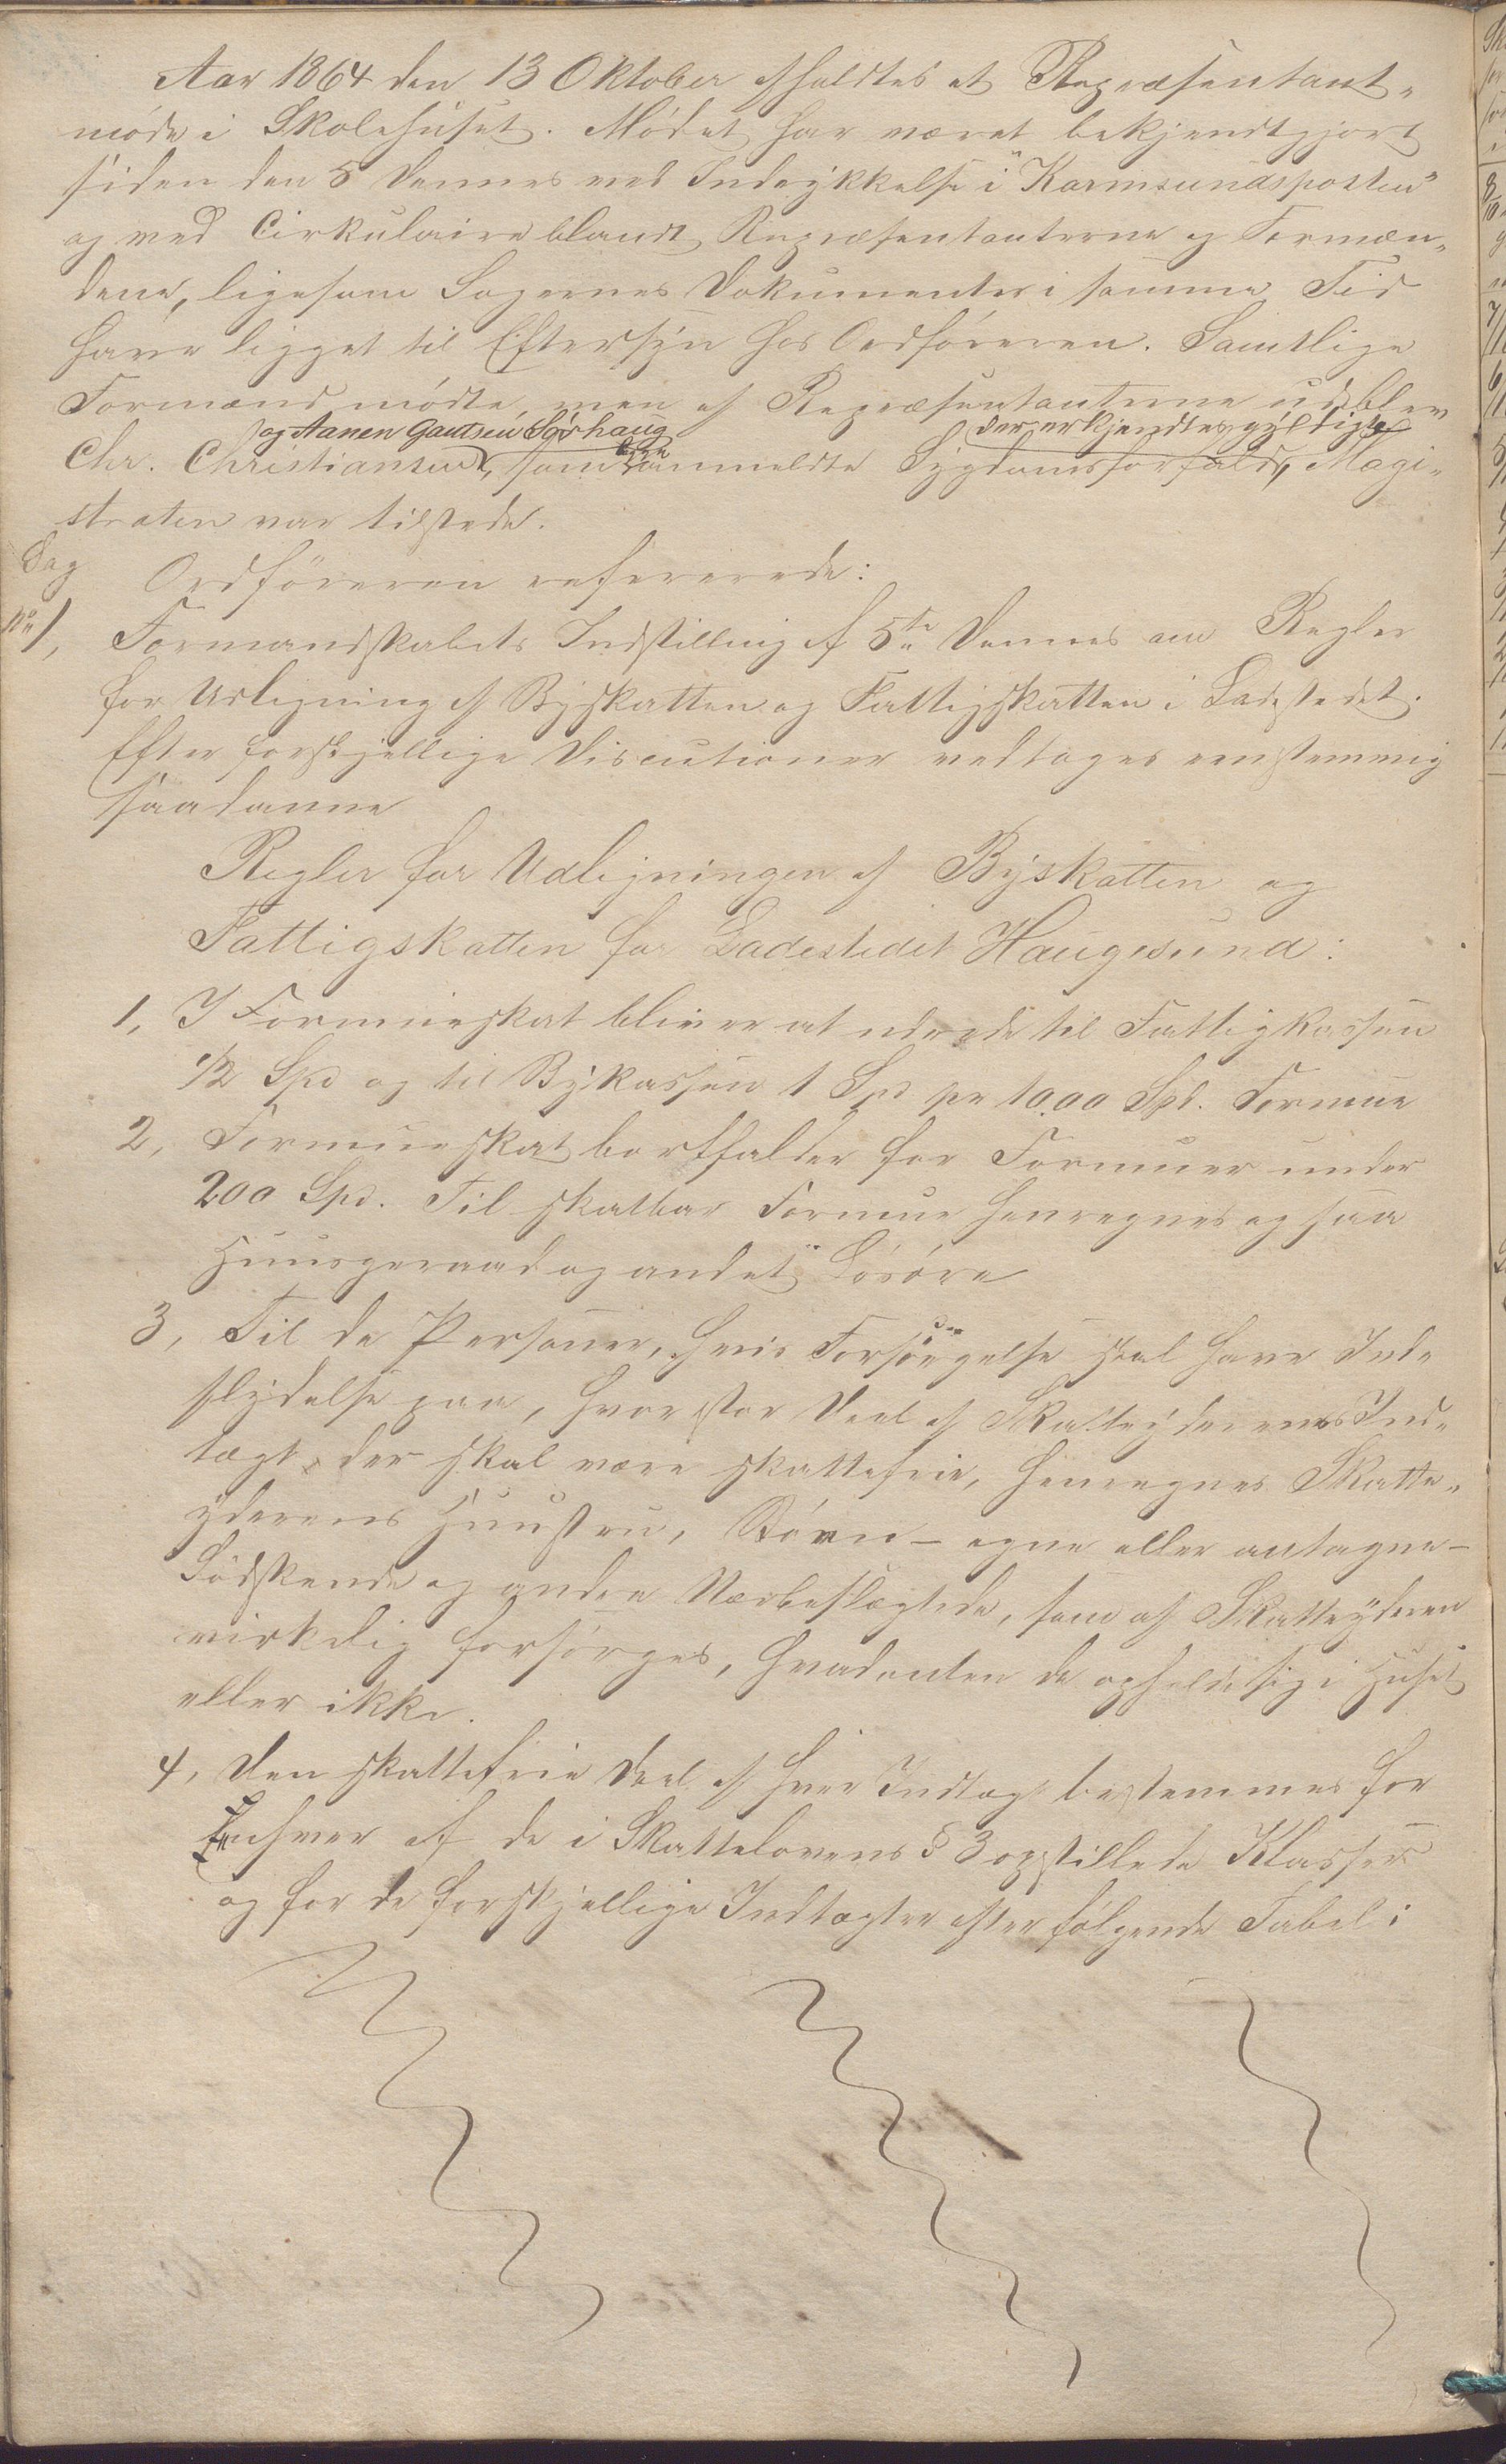 Aar 1864 den 13 Oktober afholdtes et Repræsentant-
møde i Skolehuset. Mødet har været bekjendtgjort
siden den 5 dennes ved Indrykkelse i "Karmsundsposten"
og ved Cirkulaire blandt Repræsentanterne og Formæn-
dene, ligesom Sagernes Dokumenter i samme Tid
have ligget til Eftersyn hos Ordføreren. Samtlige
Formænd mødte, men af Repræsentanterne udeblev
og Aanen Gautsen Sørhaug
der erkjendtes gyldigt
Chr. Christiansen, som anmeldte Sygdomsforfald, Magi-
straten var tilstede.
Sag Ordføreren refererede:
No 1, Formandskabets Indstilling af 5te dennes om Regler
for Udligning af Byskatten og Fattigskatten i Ladestedet.
Efter forskjellige Discutioner vedtoges eenstemmig
saadanne
Regler for Udligningen af Byskatten og
Fattigskatten for Ladestedet Haugesund:
1, I Formueskat bliver at udrede til Fattigkassen
1/2 Spd og til Bykassen 1 Spd pr 1000 Spd. Formue
2, Formueskat bortfalder for Formuer under
200 Spd. Til skatbar Formue henregnes og saa
Huusgeraad og andet Løsøre
3, Til de Personer, hvis Forsørgelse skal have Ind-
flydelse paa, hvor stor Deel af Skatteyderens Ind-
tægt der skal være skattefrie, henregnes Skatte-
yderens Huustru, Børn – egne eller antagne –
Sødskende og andre Nærbeslægtede, som af Skatteyderen
virkelig forsørges, hvadenten de opholde sig i Huset
eller ikke.
4, Den skattefrie Deel af hver Indtægt bestemmes for
Enhver af de i Skattelovens § 3 opstillede Klasser
og for de forskjellige Indtægter efter følgende Tabel: